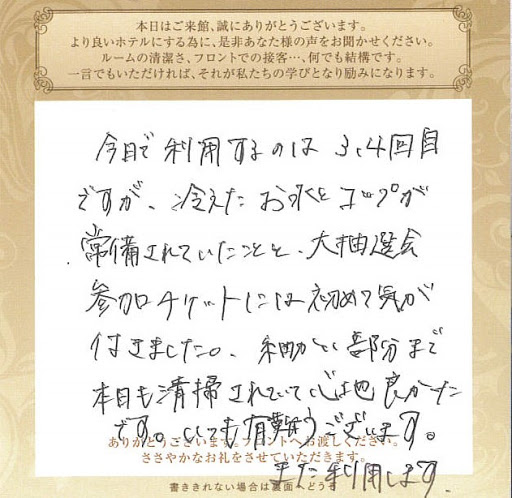 本日はご来館、誠にありがとうございます。
より良いホテルにする為に、是非あなた様の声をお聞かせください。
ルームの清潔さ、フロントでの接客…、何でも結構です。
一言でもいただければ、それが私たちの学びとなり励みになります。
今日で利用するのは 3、4回目
ですが、冷えたお水とコップが
常備されていたことと、大抽選会
参加チケットには初めて気が
付きました。細かい部分まで
本日も清掃されていて心地良かった
です。いつも有難うございます。
ありがとうございます。フロントへお渡しください。
ささやかなお礼をさせていただきます。
また利用します。
書ききれない場合は裏面へどう